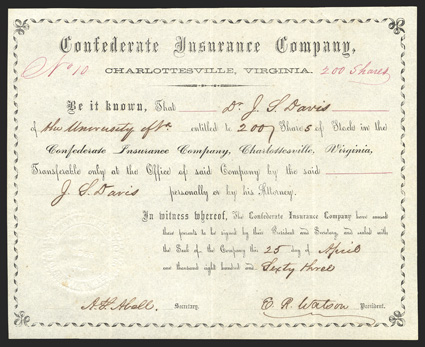 Confederate Insurance Company,
No 10 CHARLOTTESVILLE, VIRGINIA. 200 Shares
Be it known, That Dr. J. S. Davis
of the University of Va. entitled to 200 Shares of Stock in the
Confederate Insurance Company, Charlottesville, Virginia,
Transferable only at the Office of said Company by the said
J. S. Davis personally or by his Attorney.
In witness whereof, The Confederate Insurance Company have caused
these presents to be signed by their President and Secretary, and sealed with
the Seal of the Company this 25 day of April
one thousand eight hundred and Sixty three
A. S. Abell. Secretary. E. R. Watson President.